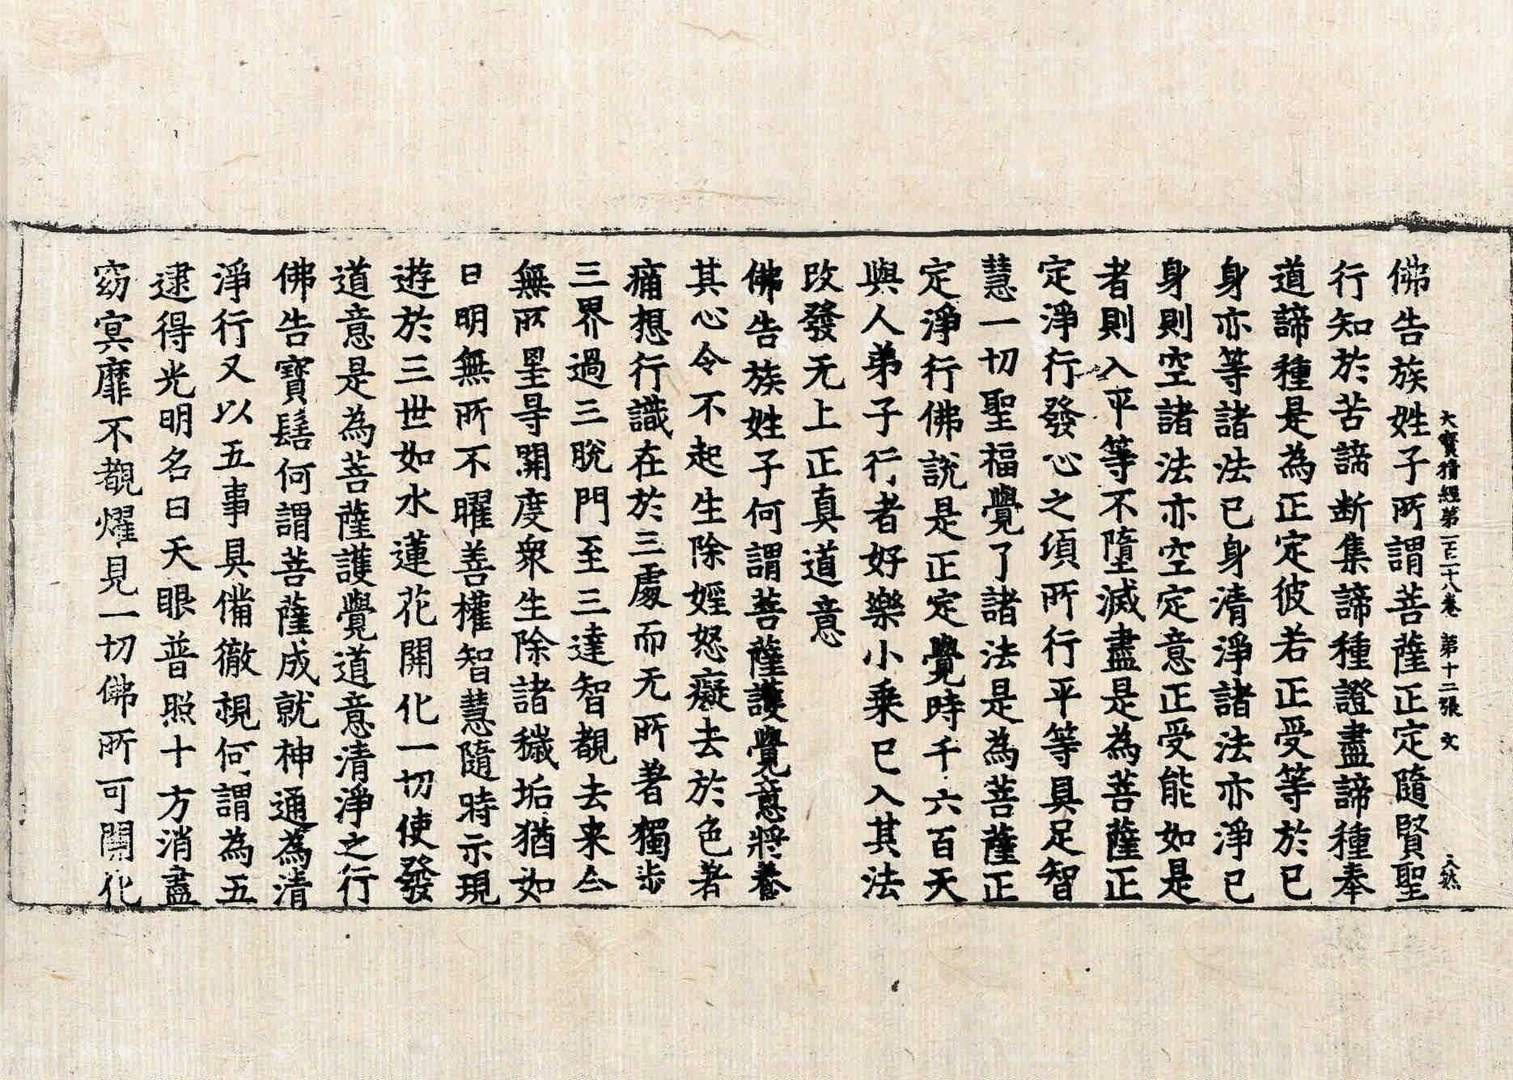 大寶積經第一百一十八卷 第十二張 文
佛告族姓子所謂菩薩正定隨賢聖
行知於苦諦斷集諦種證盡諦種奉
道諦種是為正定彼若正受等於己
身亦等諸法己身清淨諸法亦淨己
身則空諸法亦空定意正受能如是
者則入平等不墮滅盡是為菩薩正
定淨行發心之頃所行平等具足智
慧一切聖福覺了諸法是為菩薩正
定淨行佛說是正定覺時千六百天
與人弟子行者好樂小乗已入其法
改發无上正真道意
佛告族姓子何謂菩薩護覺意將養
其心令不起生除婬怒癡去於色著
痛想行識在於三處而无所著獨步
三界過三脫門至三達智覩去来今
無所罣㝵開度衆生除諸穢垢猶如
日明無所不曜善權智慧隨時示現
遊於三世如水蓮花開化一切使發
道意是為菩薩護覺道意清淨之行
佛告寶髻何謂菩薩成就神通為清
淨行又以五事具備徹視何謂為五
逮得光明名曰天眼普照十方消盡
窈冥靡不覩燿見一切佛所可開化